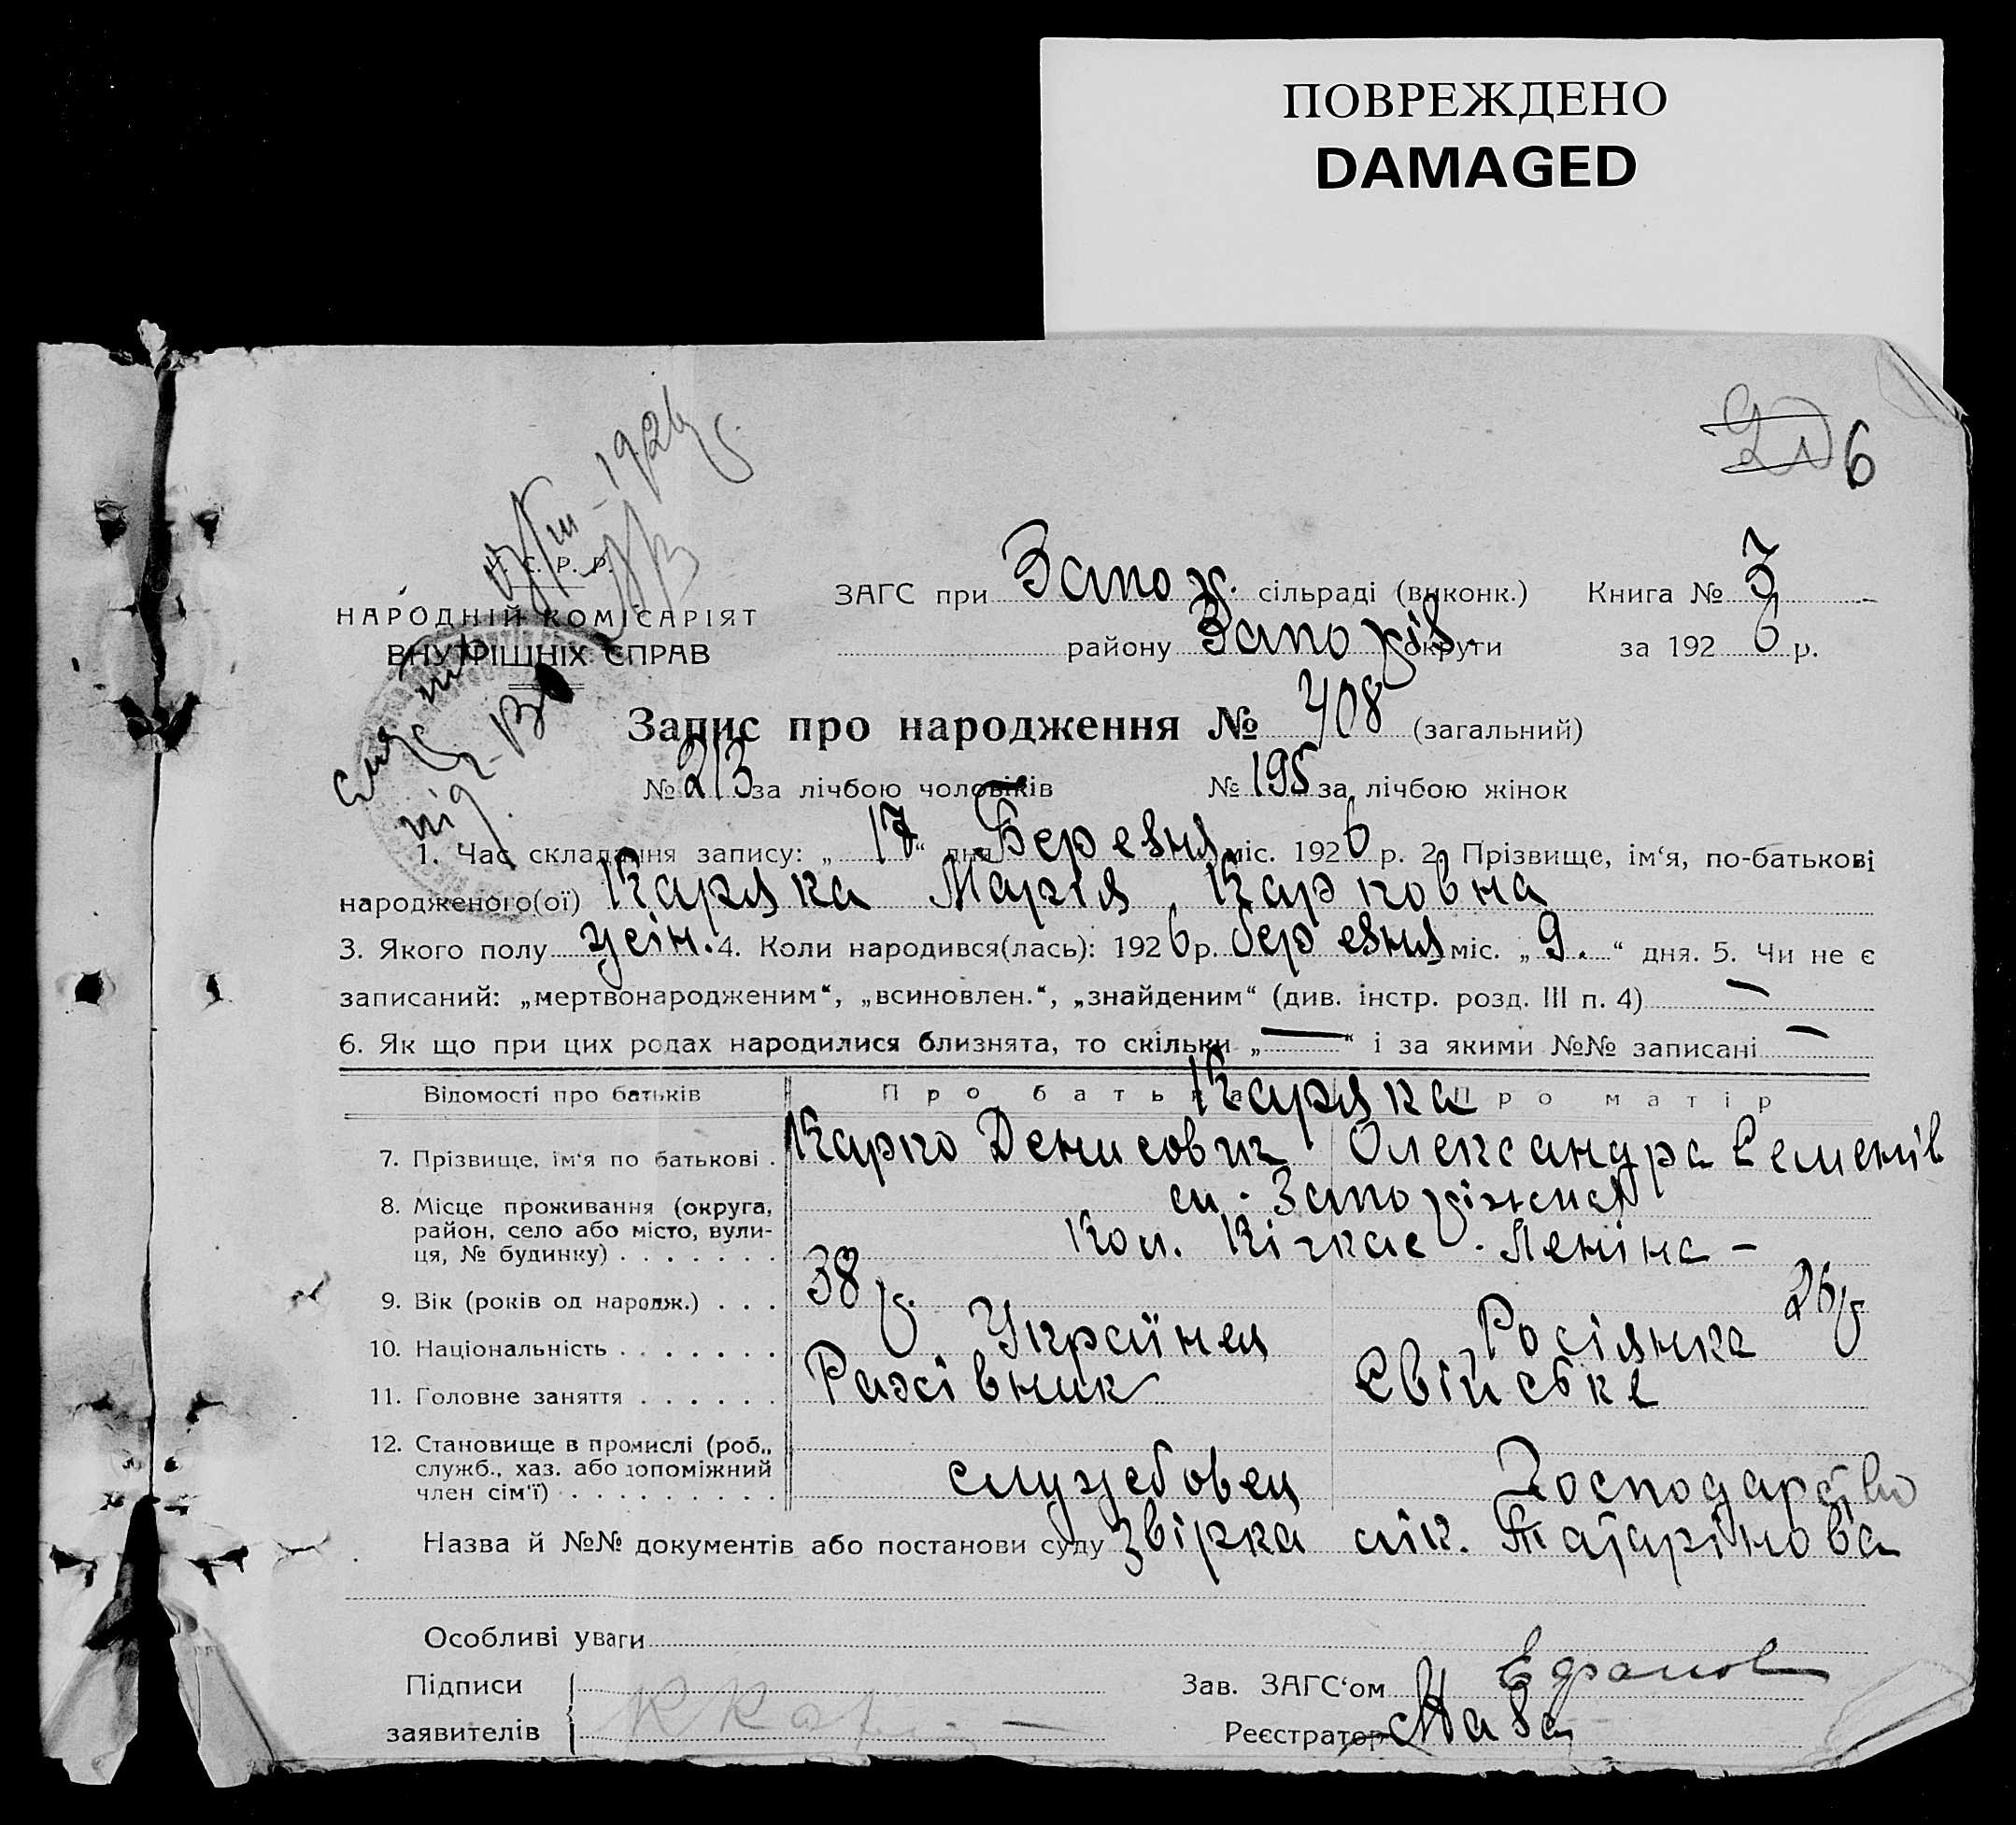 ПОВРЕЖДЕНО
DAMAGED
6
У. С. Р. Р.
НАРОДНІЙ КОМІСАРІЯТ
ВНУТРІШНІХ СПРАВ
ЗАГС при Запож. сільраді (виконк.) Книга № 3
району Запоріз. округи за 1926 р.
Запис про народження № 408 (загальний)
№ 213 за лічбою чоловіків № 195 за лічбою жінок
1. Час складання запису: „17“ дня Березня міс. 1926 р. 2. Прізвище, ім‘я, по-батькові
народженого(ої) Каряка Марія Карповна
3. Якого полу жін. 4. Коли народився(лась): 1926 р. березня міс. „9.“ дня. 5. Чи не є
записаний: „мертвонародженим“, „всиновлен.“, „знайденим“ (див. інстр. розд. III п. 4) —
6. Як що при цих родах народилися близнята, то скільки „—“ і за якими №№ записані —
Відомості про батьків Про батька Про матір
Каряка
7. Прізвище, ім‘я по батькові . Карпо Денисович Олександра Семенів
8. Місце проживання (округа, район, село або місто, вули-ця, № будинку) . . . . . . . м. Запоріжжя
Кол. Кічкас. Леніна –
9. Вік (років од народж.) . . . 38 р. 26 р.
10. Національність . . . . . . . Українец Росіянка
11. Головне заняття . . . . . . Рахівник Свійське
12. Становище в промислі (роб., служб., хаз. або допоміжний член сім‘ї) . . . . . . . . . службовец Господарство
Назва й №№ документів або постанови суду Звірка лік. Татарінова
Особливі уваги
Підписи
заявителів
Зав. ЗАГС‘ом
Реєстратор